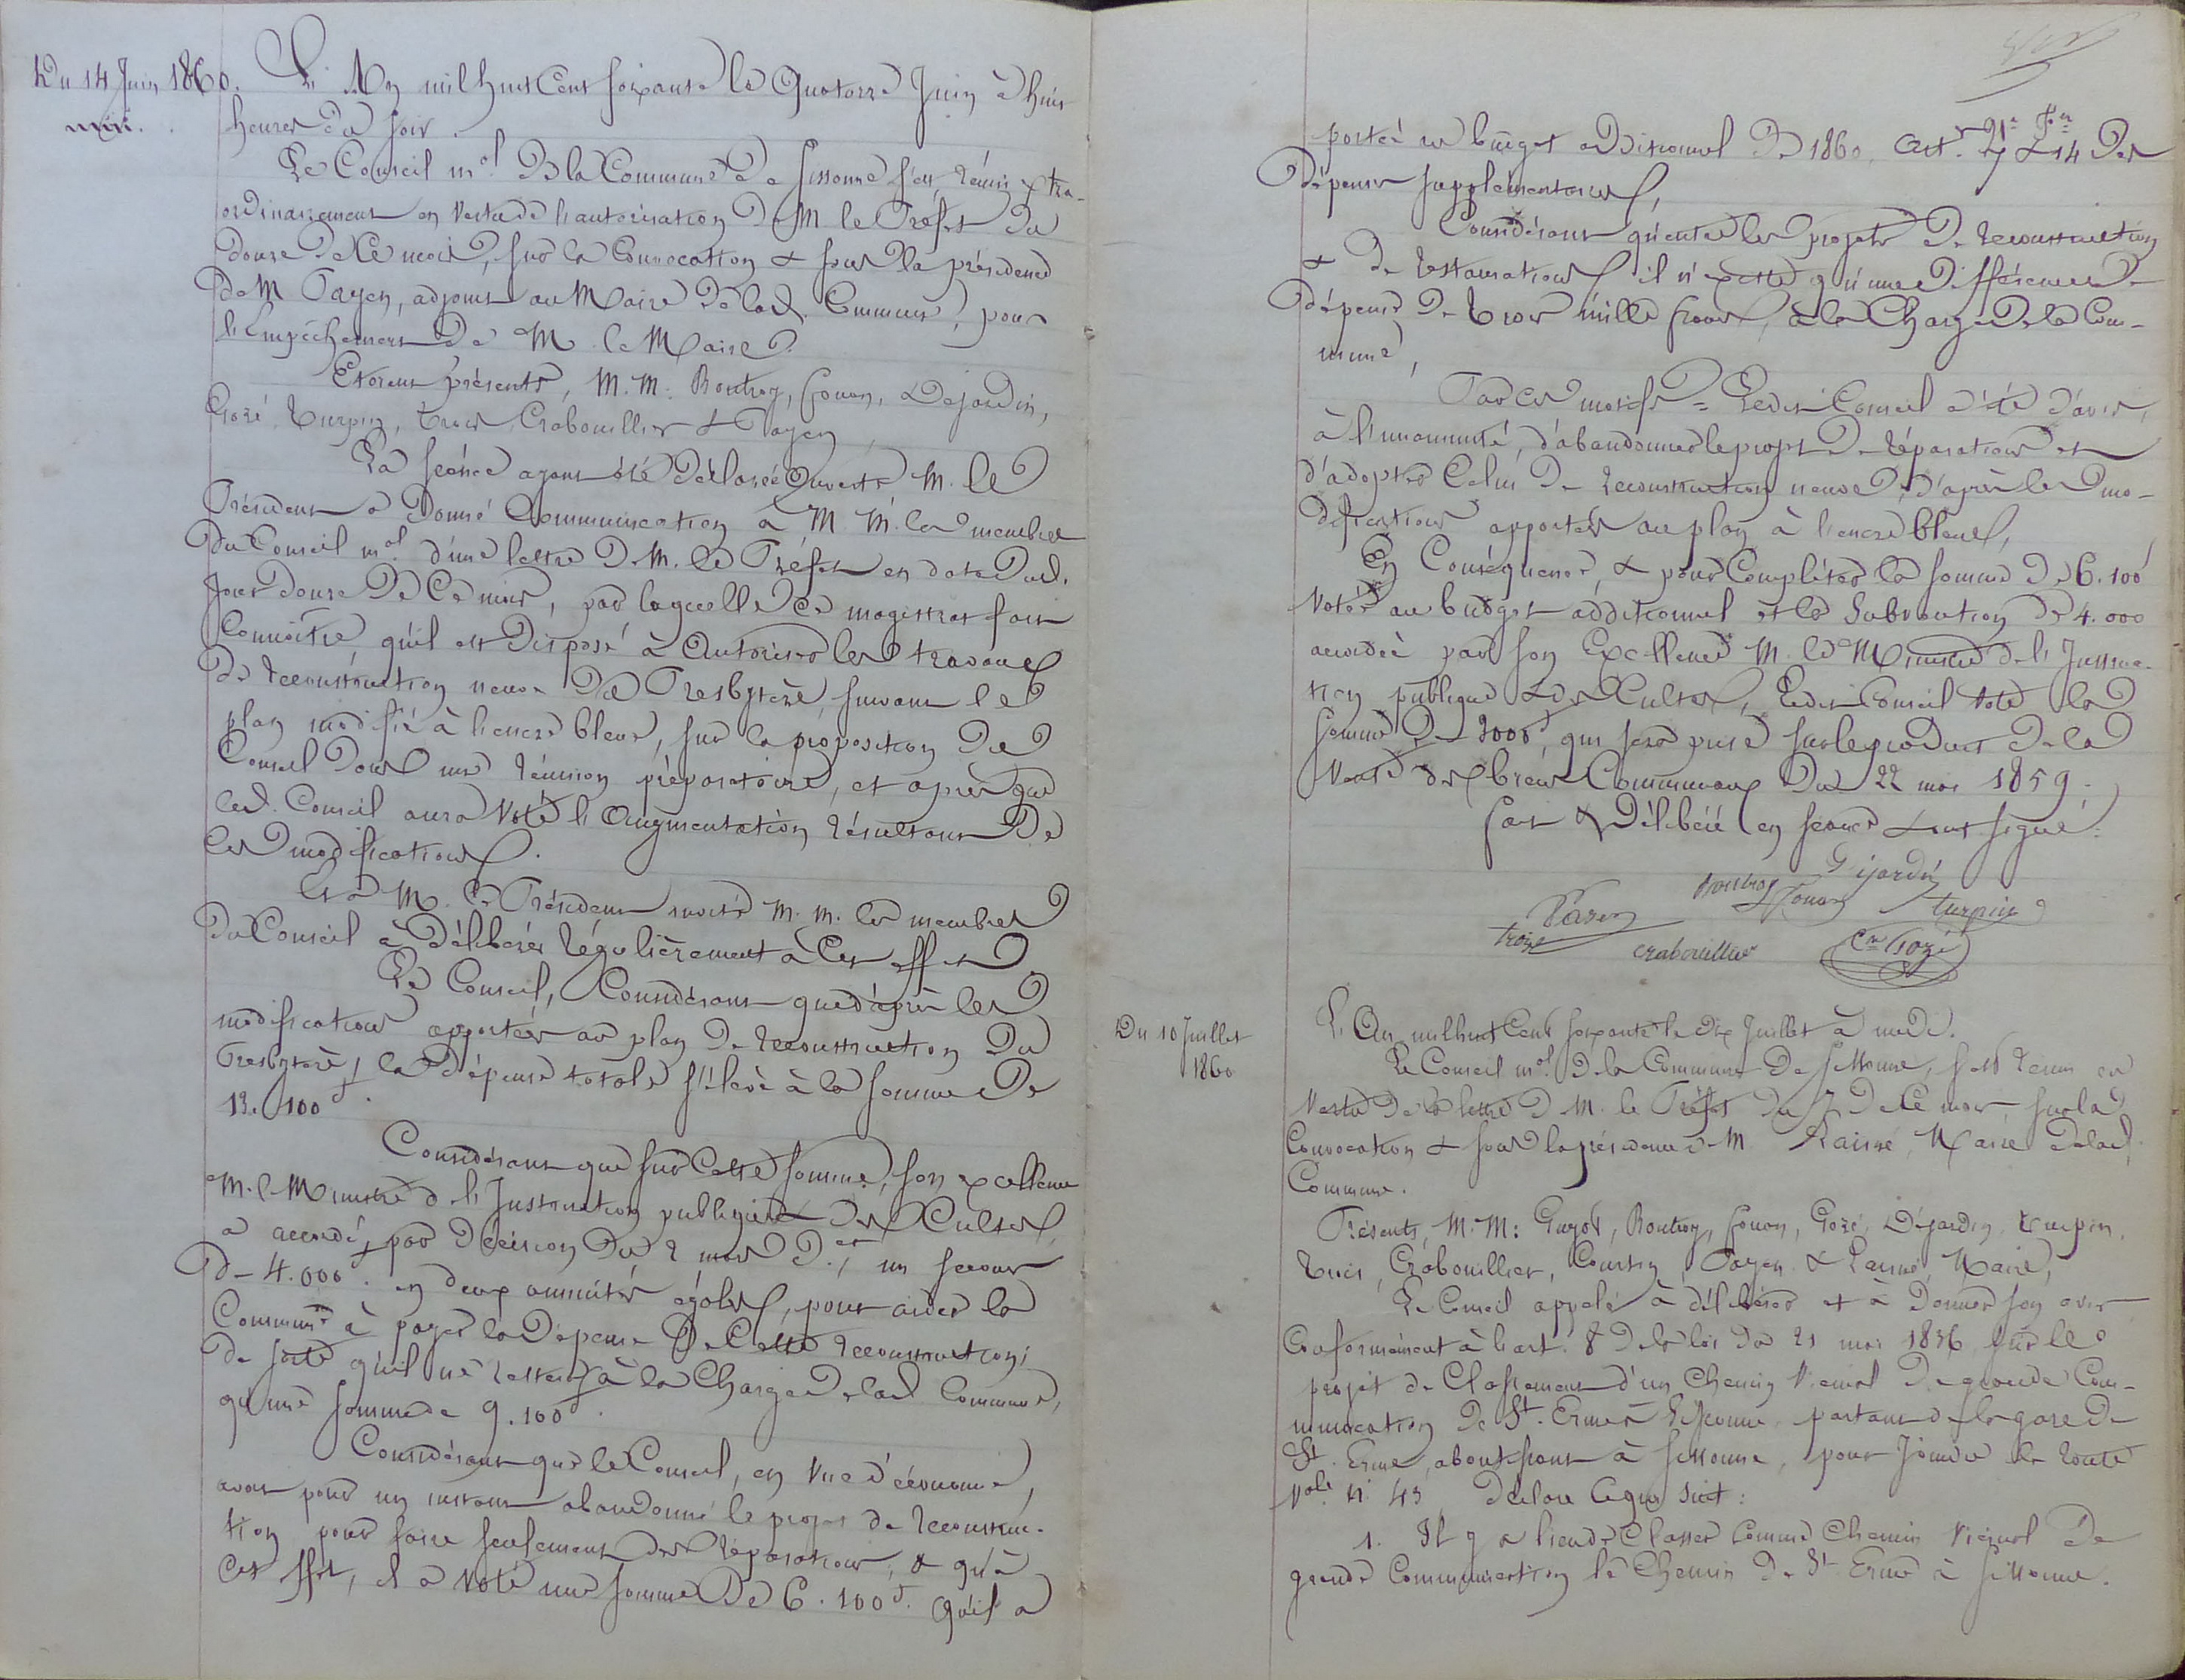 Du 14 Juin 1860.
L'An mil huit Cent soixante le Quatorze Juin à huit
heures du soir.
Le Conseil mal. De la Commune de Sissonne s'est réuni extra-
ordinairement en vertu de l'autorisation de M le Préfet du
douze de Ce mois, sur la Convocation & sous la présidence
de M Payen, adjoint au Maire de lad. Commune, pour
l'Empêchement de M. le Maire.
Etoient présents, M. M. Boutroy, fouan, Dejardin,
Gozé, Turpin, Trois, Crabouillier & Payen,
La séance ayant été déclarée Ouverte M. le
Président a Donné Communication à M. M. les membres
du Conseil mal. d'une lettre de M. le Préfet en date dud.
jour douze de Ce mois, par laquelle Ce magistrat fait
Connaître, qu'il est Disposé à Autoriser les travaux
de reconstruction neuve du Presbytère, suivant le
plan modifié à l'encre bleue, sur la proposition du
Conseil dans une réunion préparatoire, et après que
led. Conseil aura Voté l'Augmentation résultant de
ces modifications.
Et a M. le Président invité M. M. les membres
du Conseil à Délibérer régulièrement à Cet effet
Le Conseil, Considérant que d'après les
modifications apportées au plan de reconstruction du
Presbytère, la dépense totale s'élève à la somme de
13.100 f.
Considérant que sur Cette somme, son excellence
M. le Ministre de l'Instruction publique & des Cultes,
a accordé, par décision du 2 mars Der, un secours
de 4.000 f. en deux annuités égales, pour aider la
Commune à payer la Dépense de Cette reconstruction;
de sorte qu'il ne restera à la Charge de lad. Commune,
qu'une somme de 9.100 f.
Considérant que le Conseil, en vue d'économie,
avait pour un instant abandonné le projet de reconstruc-
tion pour faire seulement des réparations, & qu'à
Cet effet, il a Voté une somme de 6.100 f. qu'il a
portée au budget additionnel de 1860, Art. & 14 des
Dépenses supplémentaires,
Considérant qu'entre les projets de reconstruction
& de restauration il n'existe qu'une différence de
dépense de trois mille francs, à la Charge de la Com-
mune,
Par Ces motifs = Ledit Conseil a été d'avis,
à l'unanimité, d'abandonner le projet de réparation et
d'adopter Celui de reconstruction neuve, d'après les mo-
difications apportées au plan à l'encre bleue,
En Conséquence, & pour Compléter la somme de 6.100 f
Votée au budget additionnel et la Subvention de 4.000
accordée par son Excellence M. le Ministre de l'Instruc-
tion publique & des Cultes, Ledit Conseil Vote la
somme de 3000 f, qui sera prise sur le produit de la
Vente des biens Communaux du 22 mai 1859.
fait & Délibéré en séance & ont signé:
Dejardin
Boutroy
fouan
Payen
turpin
trois
crabouillier
Cn Gozé
Du 10 Juillet
1860
L'An mil huit Cent soixante le dix Juillet à midi.
Le Conseil mal. de la Commune de Sissonne, s'est réuni en
Vertu de la lettre de M. le Préfet du 7 de Ce mois, sur la
Convocation & sous la présidence de M. Lainné, Maire de lad.
Commune.
Présents, M. M: Guyot, Boutroy, fouan, Gozé, Dejardin, turpin,
trois, Crabouillier, Courtin, Payen & Lainné, Maire,
Le Conseil appelé à délibérer et à Donner son avis
Conformément à l'art. 8 de la loi du 21 mai 1836 sur le
projet de Classement d'un Chemin Vicinal de grande Com-
munication de St. Erme à Sissonne partant de la gare de
St. Erme, aboutissant à Sissonne, pour joindre la route
Nale. N. 43 déclare Ce qui suit:
1. Il y a lieu de Classer Comme Chemin Vicinal de
grande Communication le Chemin de St Erme à Sissonne.